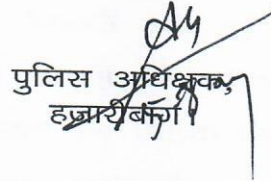 पुलिस अधिक्षक,
हजारीबाग।